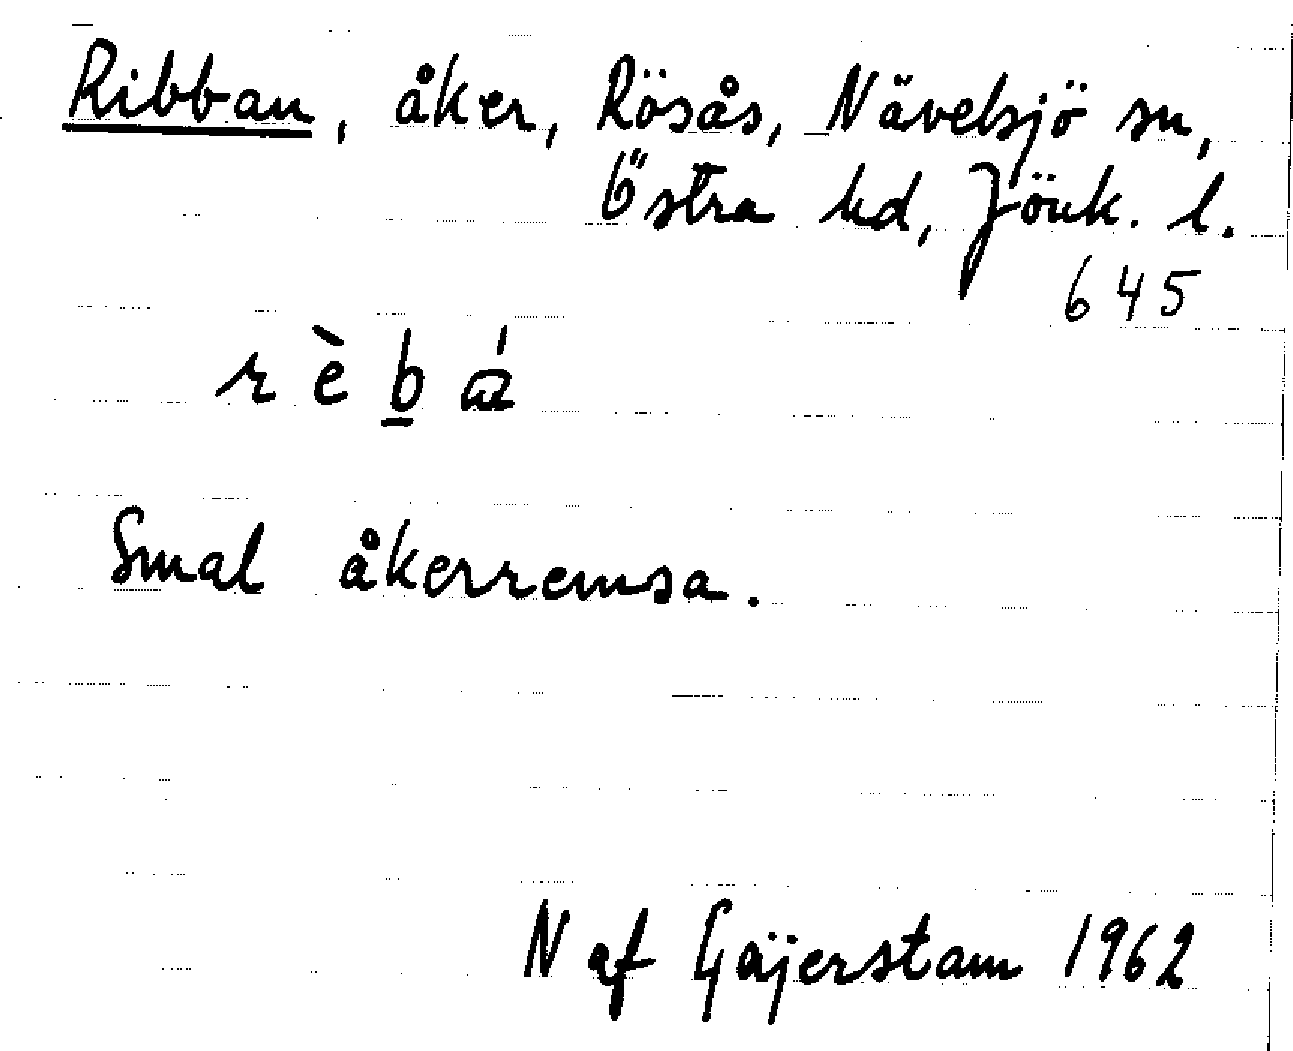 Ribban, åker, Rösås, Nävelsjö sn,
Östra hd, Jönk. l.
645
r è b á
Smal åkerremsa.
N af Gäjerstam 1962